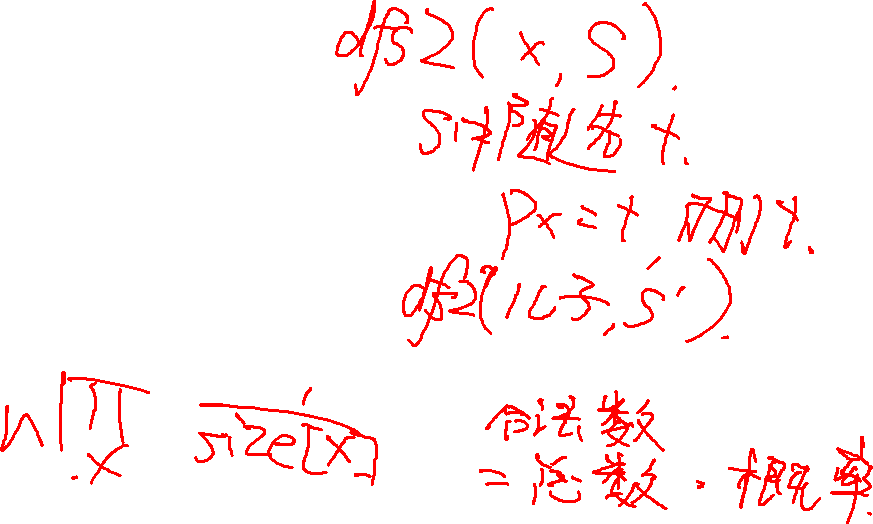 dfs2(x, S).
S中随选 t.
Px = t 删 t.
dfs2(儿子, S').
n ∏ x 1 size[x]
合法数
= 总数 · 概率.